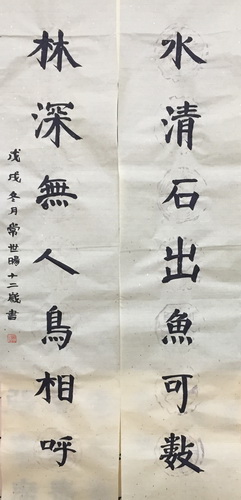 水清石出魚可數
林深無人鳥相呼
戊戌冬月常世暘十二歲書